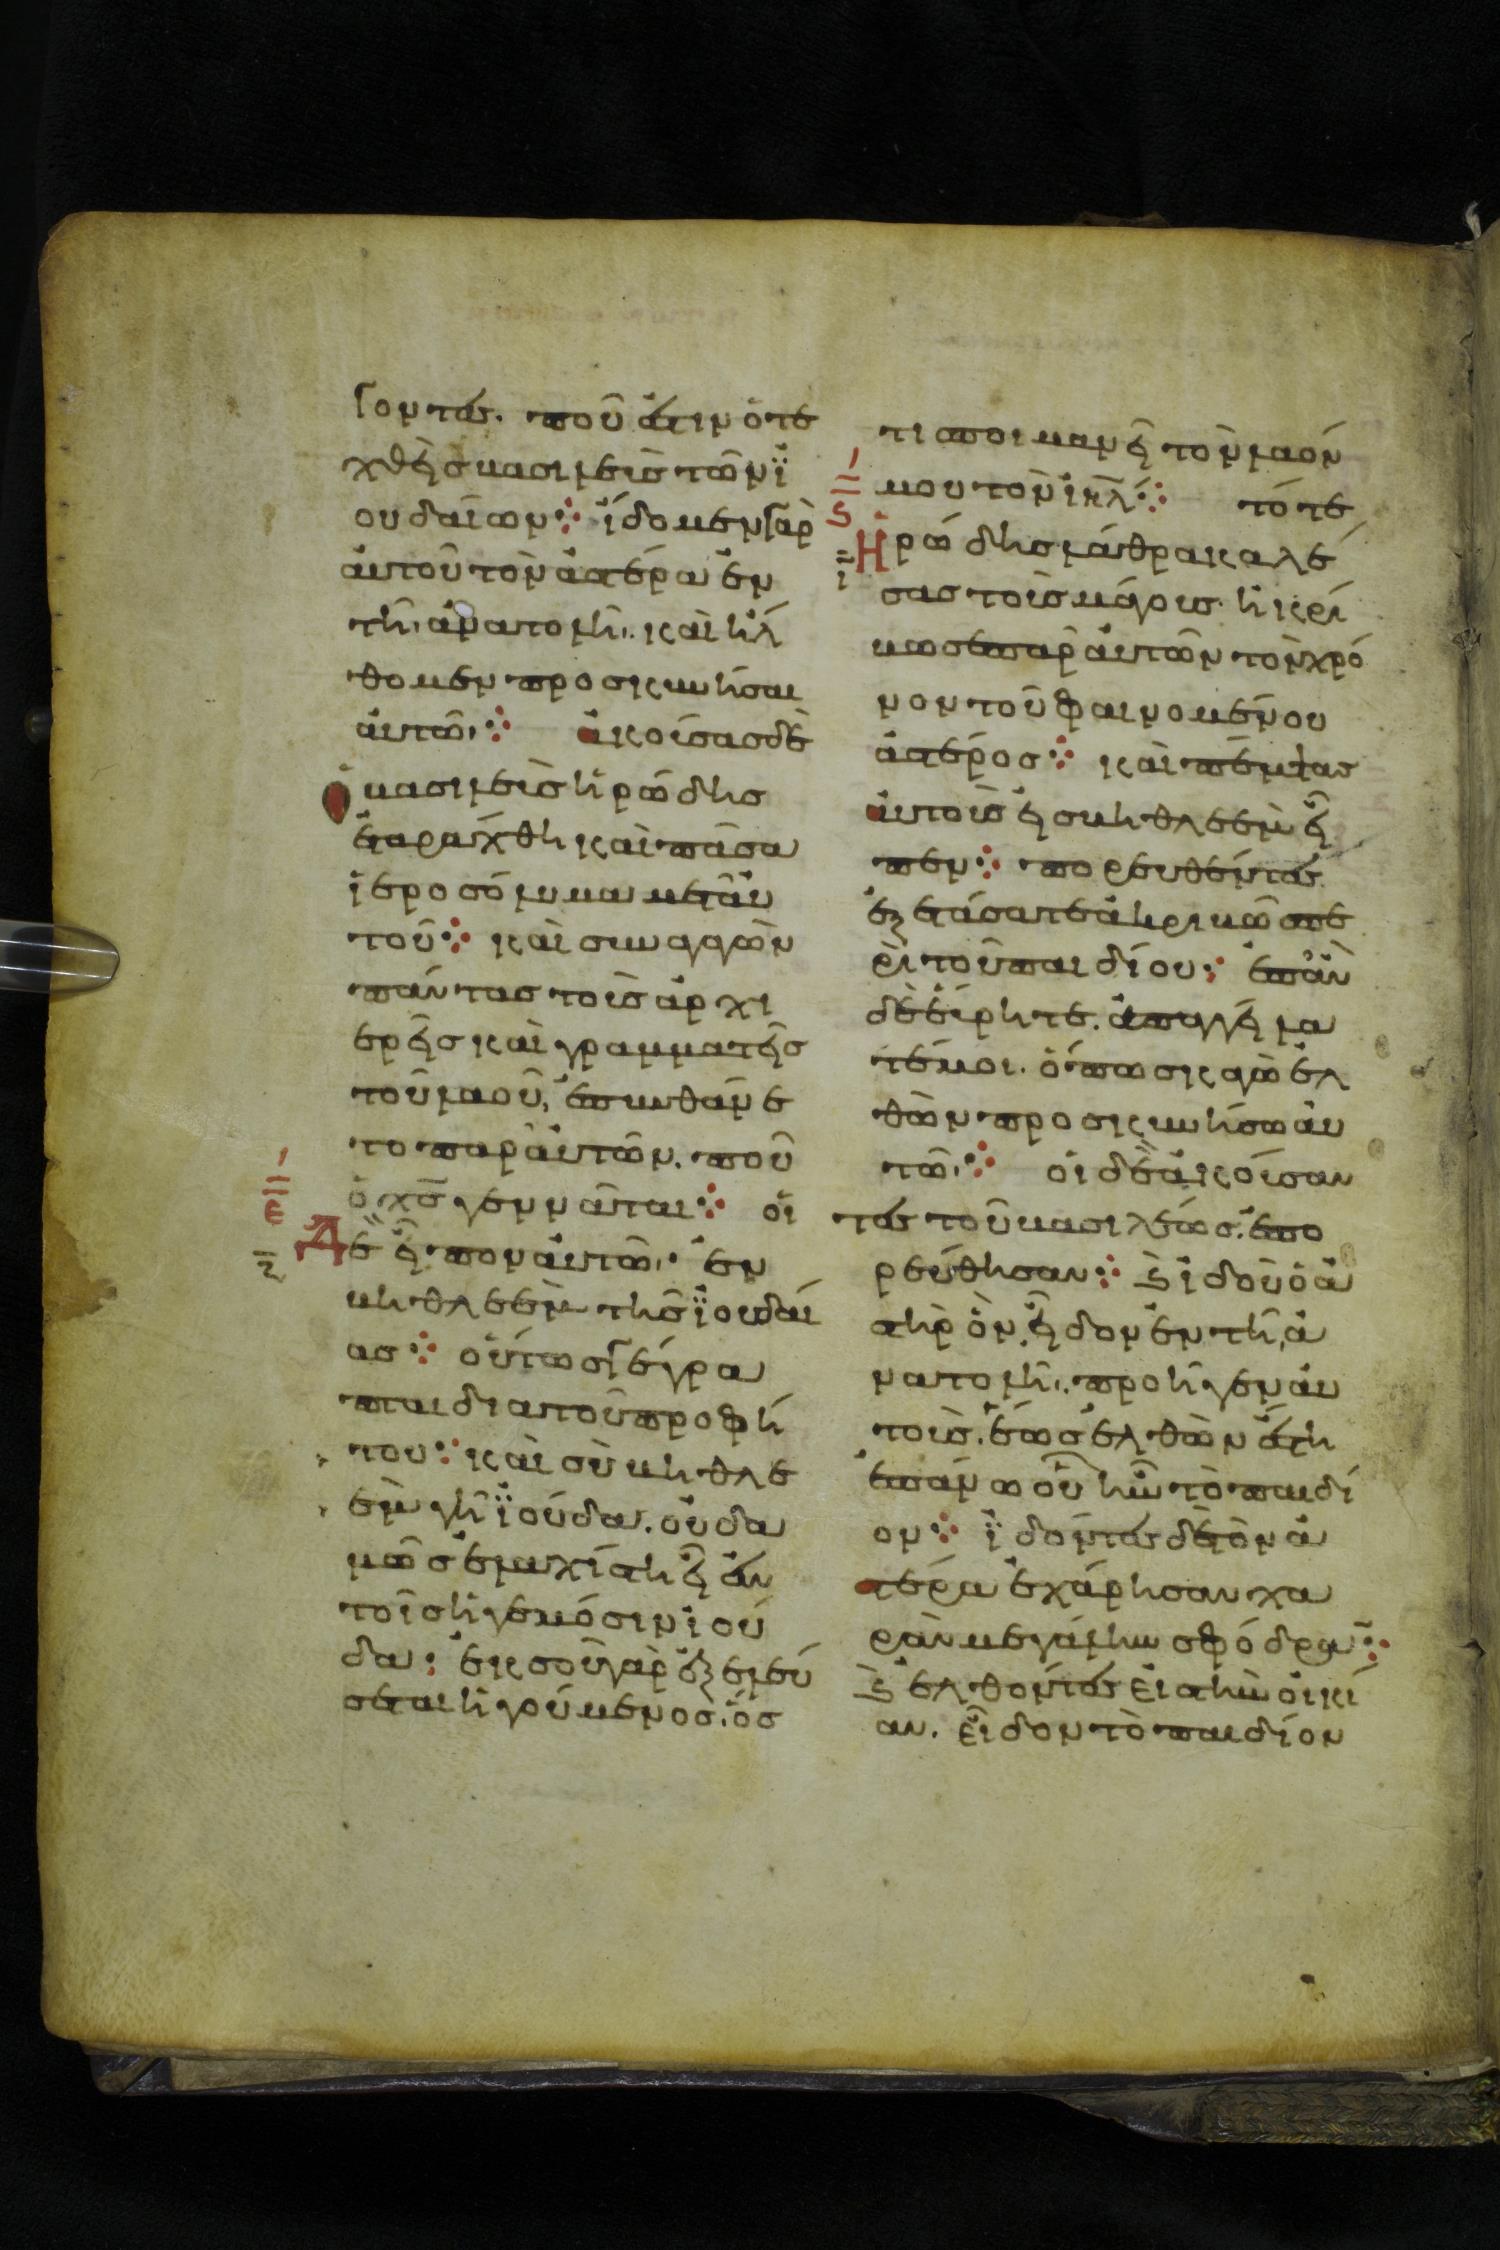 γοντες. ποῦ ἐστιν ὁ τε
χθεὶς βασιλεὺς τῶν ϊ
ουδαίων ⁘ ἴδομεν γὰρ
αὐτοῦ τὸν ἀστέρα ἐν
τῆι ἀνατολῆι. καὶ ἤλ
θομεν προσκυνῆσαι
αὐτῶι ⁘ ἀκούσας δὲ
ὁ βασιλεὺς ἡρώδης
ἐταράχθη καὶ πᾶσα
ἱεροσόλυμα μετ᾽ αὐ
τοῦ ⁘ καὶ συναγαγὼν
πάντας τοὺς ἀρχι
ερεῖς καὶ γραμματεῖς
τοῦ λαοῦ, ἐπυνθάνε
το παρ᾽ αὐτῶν. ποῦ
ὁ χς γεννᾶται ⁘ οἱ
ε
Δὲ εἶπον αὐτῶι· ἐν
ζ
βηθλεὲμ τῆς ϊουδαί
ας ⁘ οὕτως γέγρα
πται διὰ τοῦ προφή
του ⁘ καὶ σὺ βηθλε
ὲμ γῆ ϊούδα. οὐδα
μῶς ἐλαχίστη εἶ ἐν
τοῖς ἡγεμόσιν ἰού
δα : ἐκ σοῦ γὰρ ἐξελεύ
σεται ἡγούμενος. ὅς
τις ποιμανεῖ τὸν λαόν
μου τὸν ιηλ ⁘ τότε
ς
Ἡρώδης λάθρα καλέ
ι
σας τοὺς μάγους. ἠκρί
βωσε παρ᾽ αὐτῶν τὸν χρό
νον τοῦ φαινομένου
ἀστέρος ⁘ καὶ πέμψας
αὐτοὺς εἰς βηθλεὲμ εἶ
πεν ⁘ πορευθέντες
ἐξετάσατε ἀκριβῶς πε
ρὶ τοῦ παιδίου : ἐπὰν
δὲ εὕρητε. ἀπαγγείλα
τέ μοι. ὅπως κἀγὼ ἐλ
θὼν προσκυνήσω αὐ
τῶι ⁘ οἱ δὲ ἀκούσαν
τες τοῦ βασιλέως. ἐπο
ρεύθησαν ⁘ ϗ ἰδοὺ ὁ ἀ
στὴρ ὃν εἶδον ἐν τῆι ἀ
νατολῆι. προῆγεν αὐ
τοὺς. ἕως ἐλθὼν ἔστη
ἐπάνω οὗ ἦν τὸ παιδί
ον ⁘ ϊδόντες δὲ τὸν ἀ
στέρα ἐχάρησαν χα
ρὰν μεγάλην σφόδρα ⁘
ϗ ἐλθόντες εἰς τὴν οἰκί
αν. εἶδον τὸ παιδίον